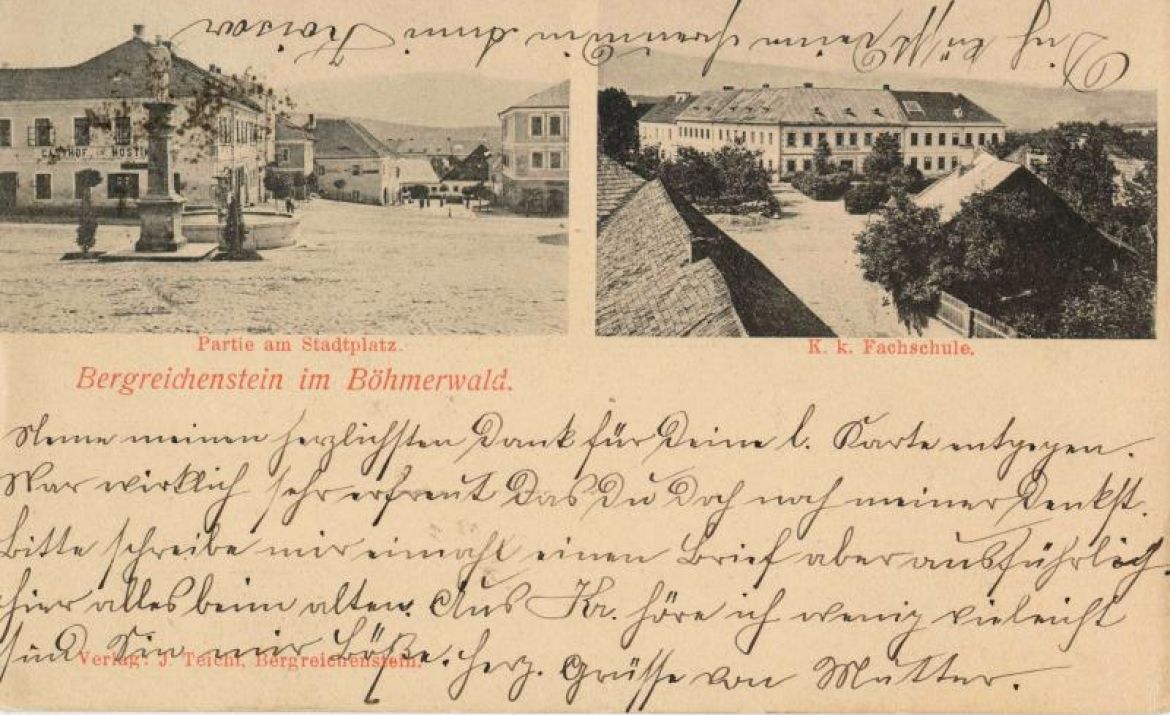 Dich küßt Deine Freundin Anni Kaiser
GASTHOF HOSTIN
Partie am Stadtplatz.
K. k. Fachschule.
Bergreichenstein im Böhmerwald.
Neme meinen herzlichsten Dank für Deine l. Karte entgegen.
War wirklich sehr erfreut Das Du Doch noch meiner Denkst.
Bitte schreibe mir einmahl einen Brief aber ausführlich.
hier alles beim alten. Aus Kr. höre ich wenig vieleicht
sind Sie mir Böße. herz. Grüsse von Mutter.
Verlag: J. Teichl, Bergreichenstein.